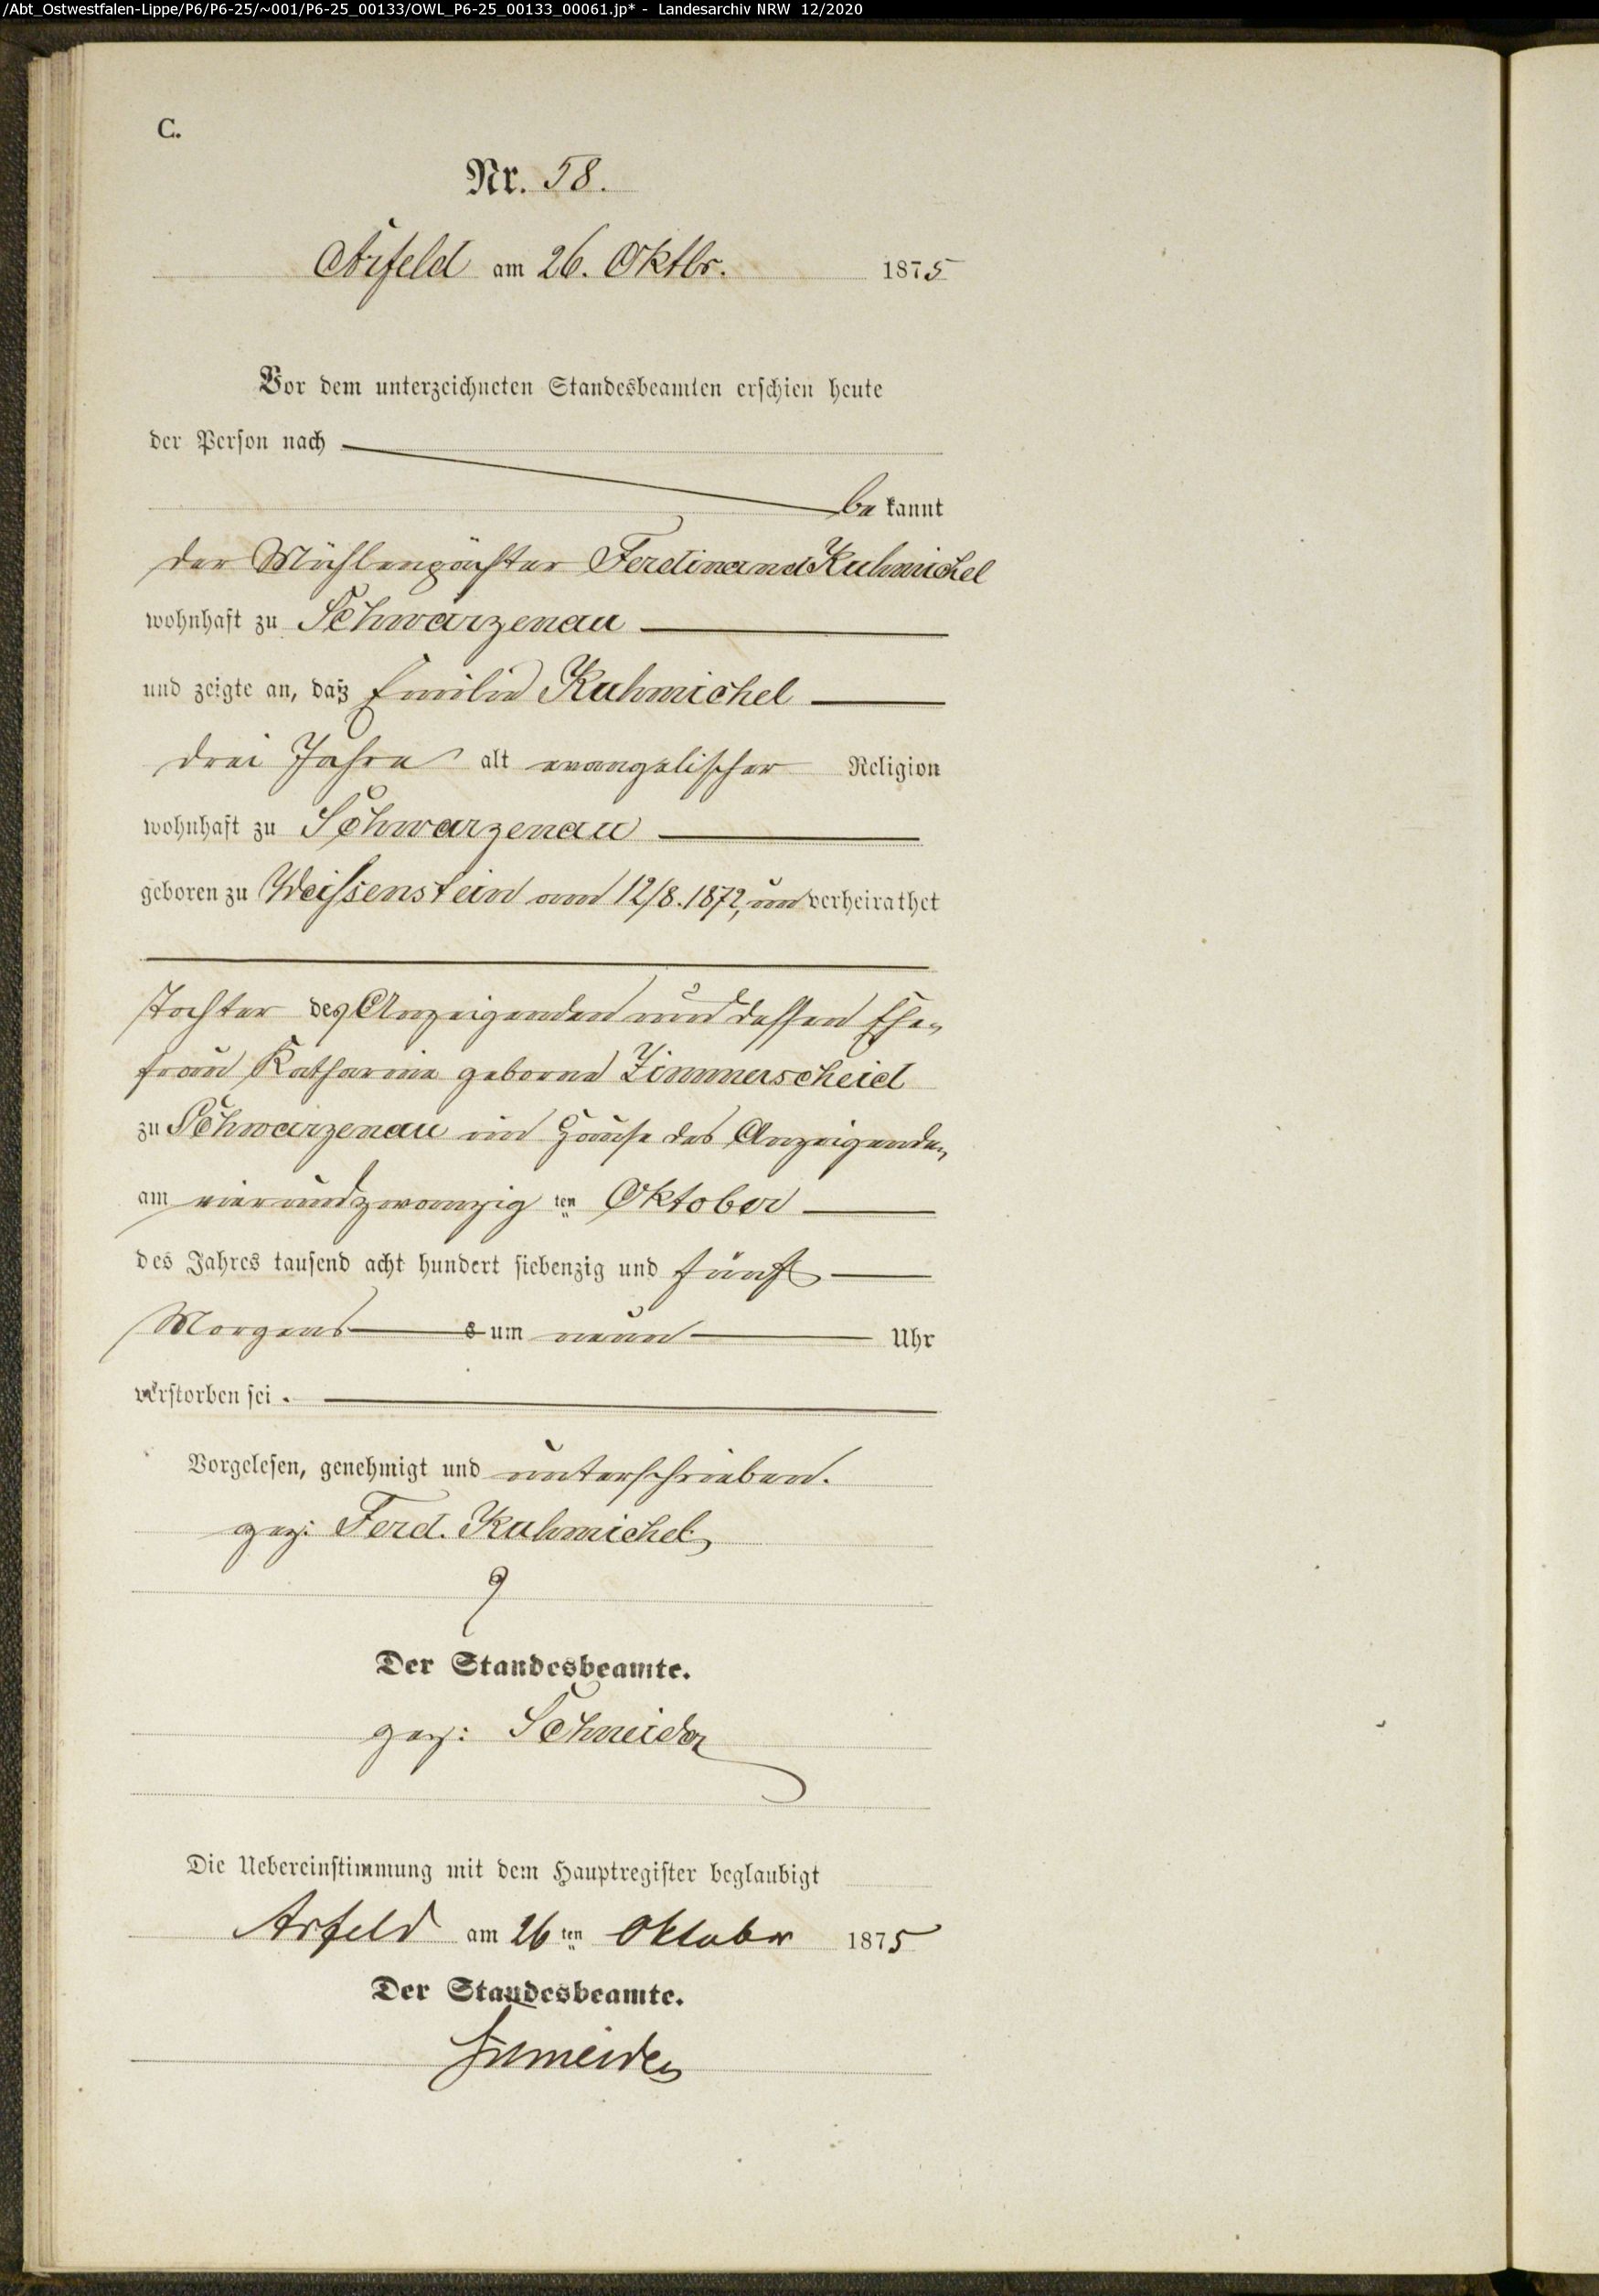 /Abt_Ostwestfalen-Lippe/P6/P6-25/~001/P6-25_00133/OWL_P6-25_00133_00061.jp* - Landesarchiv NRW 12/2020
C.
Nr. 58.
Arfeld am 26. Oktbr. 1875
Vor dem unterzeichneten Standesbeamten erschien heute
der Person nach
be kannt
der Mühlenpächter Ferdinand Kuhmichel
wohnhaft zu Schwarzenau
und zeigte an, daß Emilie Kuhmichel
drei Jahre alt evangelischer Religion
wohnhaft zu Schwarzenau
geboren zu Weissenstein am 12/8. 1872, un verheirathet
Tochter des Anzeigenden und dessen Ehe-
frau Katharine geborne Zimmerscheid
zu Schwarzenau im Hause des Anzeigenden
am vierundzwanzig ten Oktober
des Jahres tausend acht hundert siebenzig und fünf
Morgens s um neun Uhr
verstorben sei.
Vorgelesen, genehmigt und unterschrieben.
gez: Ferd. Kuhmichel
Der Standesbeamte.
gez: Schneider
Die Uebereinstimmung mit dem Hauptregister beglaubigt
Arfeld am 26 ten Oktober 1875
Der Standesbeamte.
Schneider